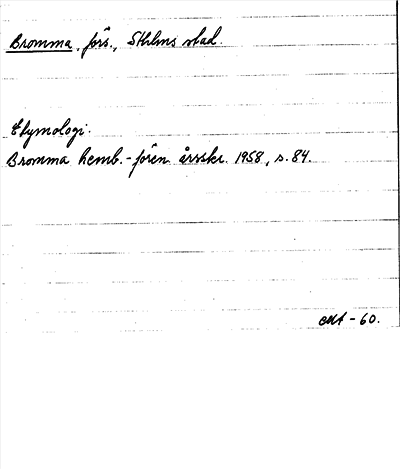 Bromma, förs., Sthlms stad.
Etymologi.
Bromma hemb.-fören. årsskr. 1958, s. 84.
-60.